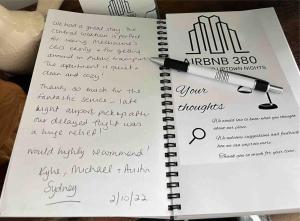 We had a great stay. The
central location is perfect
for seeing Melbourne's
CBD easily + for getting
around on public transport.
The apartment is quiet +
clean and cozy!
Thanks so much for the
fantastic service - late
night airport pickup after
our delayed flight was
a huge relief!
Would highly recommend!
Kylie, Michael + Austin
Sydney
2/10/22
AIRBNB 380
UPTOWN NIGHTS
Your
thoughts
We would love to hear what you thought
about our place.
We welcome suggestions and feedback
so we can improve more.
Thank you so much for your time.